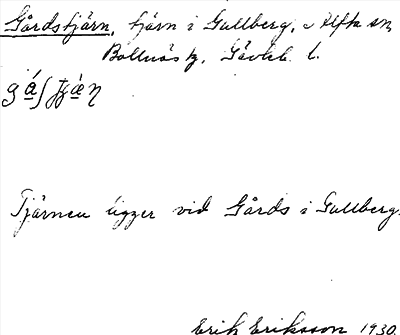 Gårdstjärn, tjärn i Gullberg, Alfta sn,
Bollnäs tg, Gävleb. l.
Tjärnen ligger vid Gårds i Gullberg.
Erik Eriksson 1930.